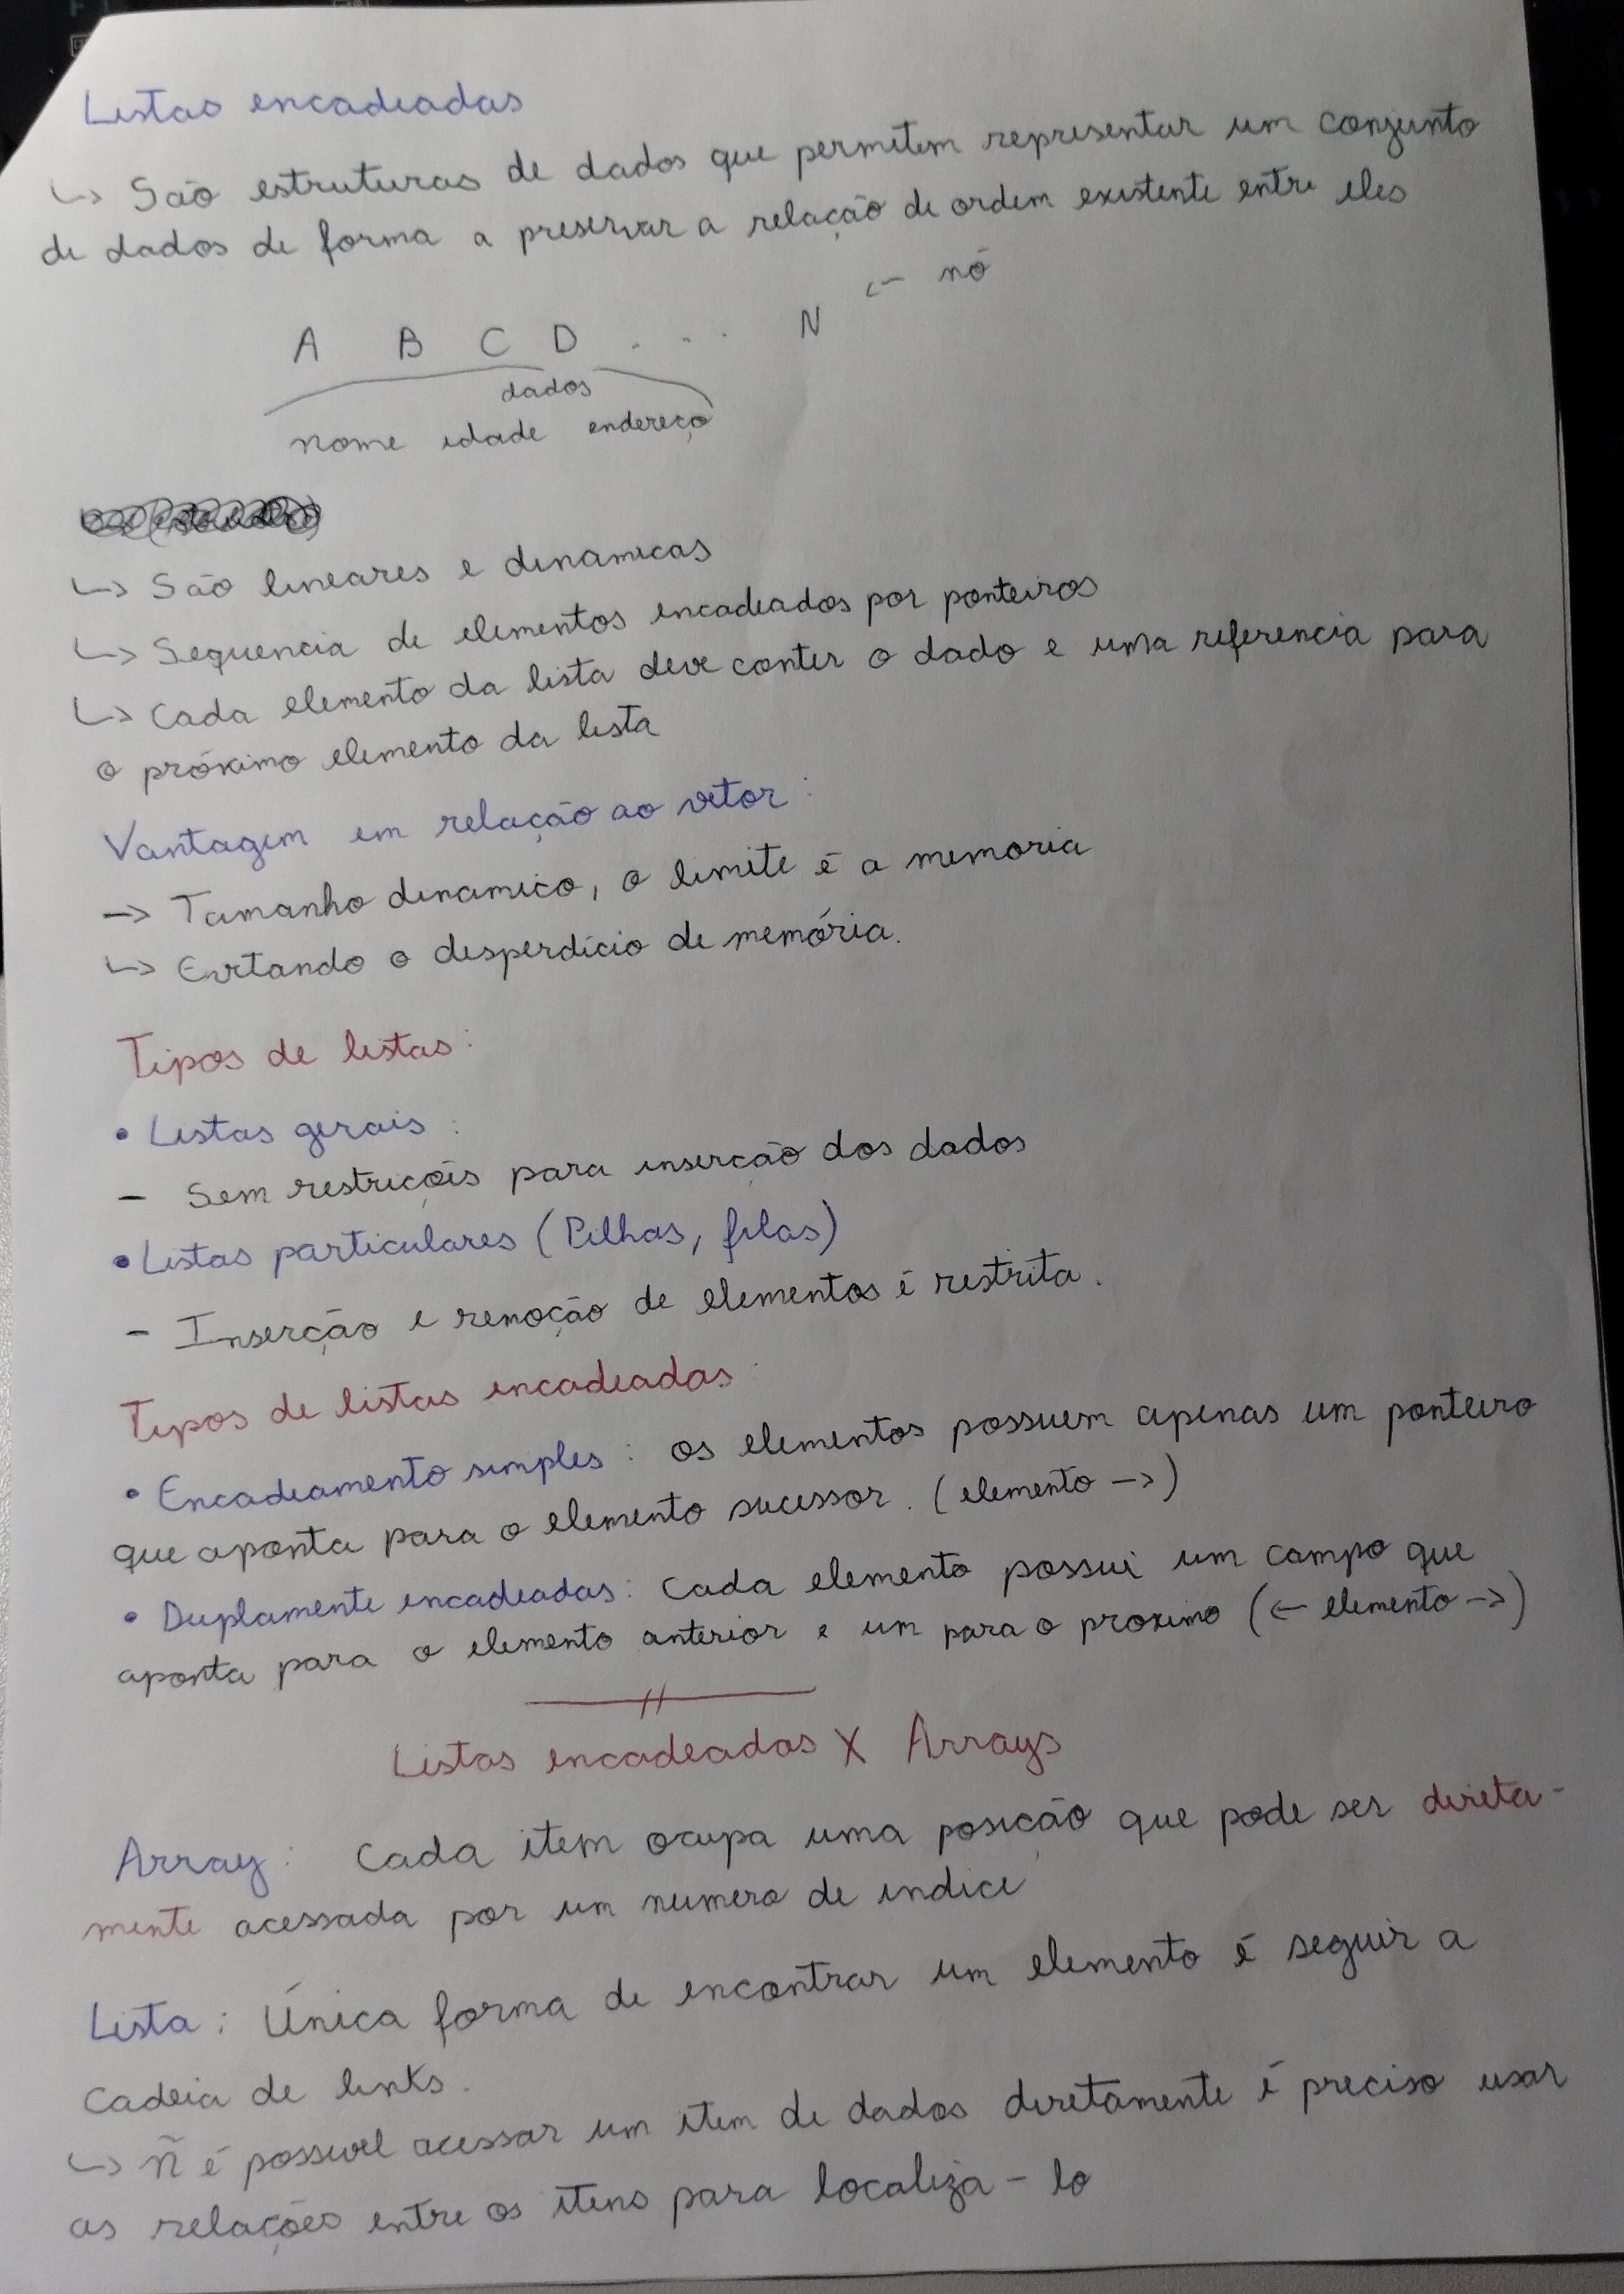 Listas encadeadas
↳ São estruturas de dados que permitem representar um conjunto
de dados de forma a preservar a relação de ordem existente entre eles
← nó
A B C D . . . N
dados
nome idade endereço
↳ São lineares e dinamicas
↳ Sequencia de elementos encadeados por ponteiros
↳ Cada elemento da lista deve conter o dado e uma referencia para
o próximo elemento da lista
Vantagem em relação ao vetor:
→ Tamanho dinamico, o limite é a memoria
↳ Evitando o desperdício de memória.
Tipos de listas:
• Listas gerais:
- Sem restrições para inserção dos dados
• Listas particulares (Pilhas, filas)
- Inserção e remoção de elementos é restrita.
Tipos de listas encadeadas:
• Encadeamento simples: os elementos possuem apenas um ponteiro
que aponta para o elemento sucessor. (elemento →)
• Duplamente encadeadas: cada elemento possui um campo que
aponta para o elemento anterior e um para o proximo (← elemento →)
Listas encadeadas X Arrays
Array: Cada item ocupa uma posição que pode ser direta-
mente acessada por um numero de indice
Lista: Única forma de encontrar um elemento é seguir a
cadeia de links.
↳ ñ é possivel acessar um item de dados diretamente é preciso usar
as relações entre os itens para localiza-lo